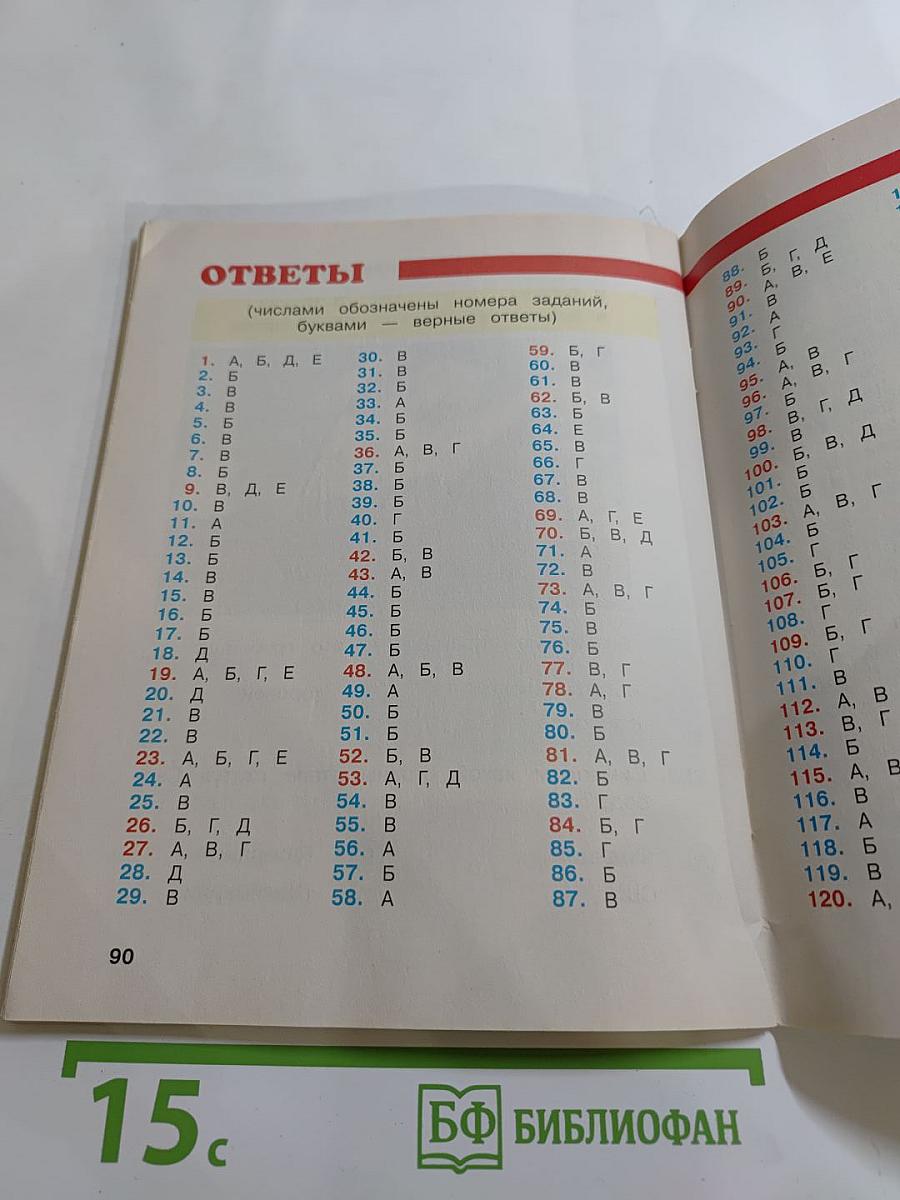 ОТВЕТЫ
(числами обозначены номера заданий,
буквами — верные ответы)
1. А, Б, Д, Е
2. Б
3. В
4. В
5. Б
6. В
7. В
8. Б
9. В, Д, Е
10. В
11. А
12. Б
13. Б
14. В
15. В
16. Б
17. Б
18. Д
19. А, Б, Г, Е
20. Д
21. В
22. В
23. А, Б, Г, Е
24. А
25. В
26. Б, Г, Д
27. А, В, Г
28. Д
29. В
30. В
31. В
32. Б
33. А
34. Б
35. Б
36. А, В, Г
37. Б
38. Б
39. Б
40. Г
41. Б
42. Б, В
43. А, В
44. Б
45. Б
46. Б
47. Б
48. А, Б, В
49. А
50. Б
51. Б
52. Б, В
53. А, Г, Д
54. В
55. В
56. А
57. Б
58. А
59. Б, Г
60. В
61. В
62. Б, В
63. Б
64. Е
65. В
66. Г
67. В
68. В
69. А, Г, Е
70. Б, В, Д
71. А
72. В
73. А, В, Г
74. Б
75. В
76. Б
77. В, Г
78. А, Г
79. В
80. Б
81. А, В, Г
82. Б
83. Г
84. Б, Г
85. Г
86. Б
87. В
90
88. Б
89. Б, Г, Д
90. А, В, Е
91. В
92. А
93. Г
94. Б
95. А, В
96. А, В, Г
97. Б
98. В, Г, Д
99. В
100. Б, В, Д
101. Б
102. Б
103. А, В, Г
104. Б
105. Г
106. Б, Г
107. Б, Г
108. Г
109. Б, Г
110. Г
111. В
112. А, В
113. В, Г
114. Б
115. А, В
116. В
117. А
118. Б
119. В
120. А,
15 с
БФ БИБЛИОФАН